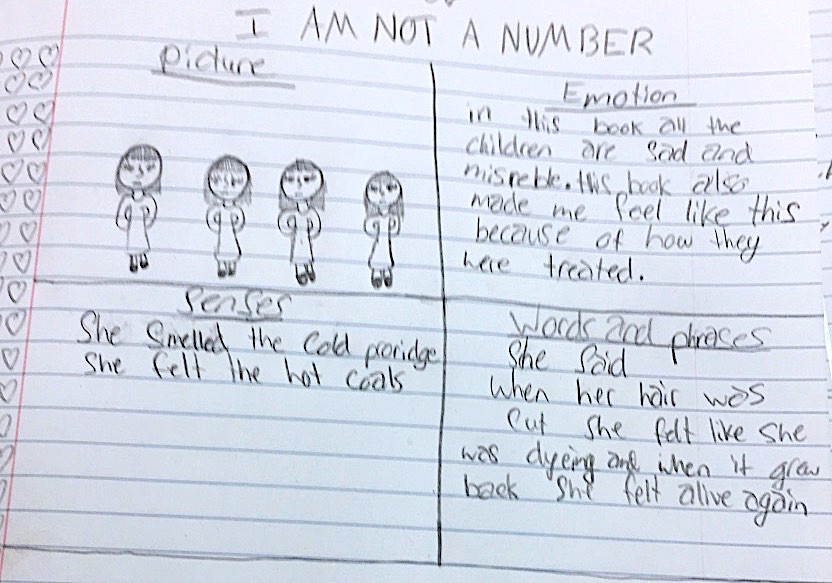 I AM NOT A NUMBER
Picture
Emotion
in this book all the
children are sad and
misreble. this book also
made me feel like this
because of how they
here treated.
Senses
She Smelled the Cold proridge
She felt the hot coals
Words and phrases
She Said
When her hair was
Cut she felt like she
was dyeing and when it grew
back She felt alive again